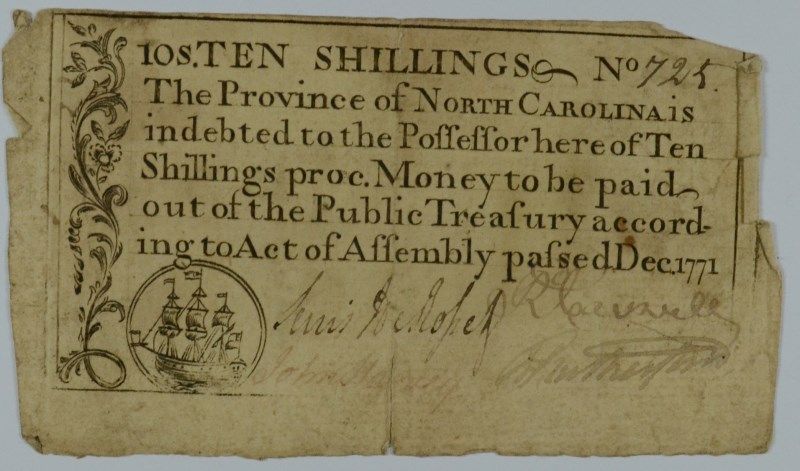 10S. TEN SHILLINGS No 725.
The Province of NORTH CAROLINA is
indebted to the Poſſeſſor here of Ten
Shillings proc. Money to be paid
out of the Public Treaſury accord-
ing to Act of Aſſembly paſsed Dec. 1771
Lewis De Rosset
John